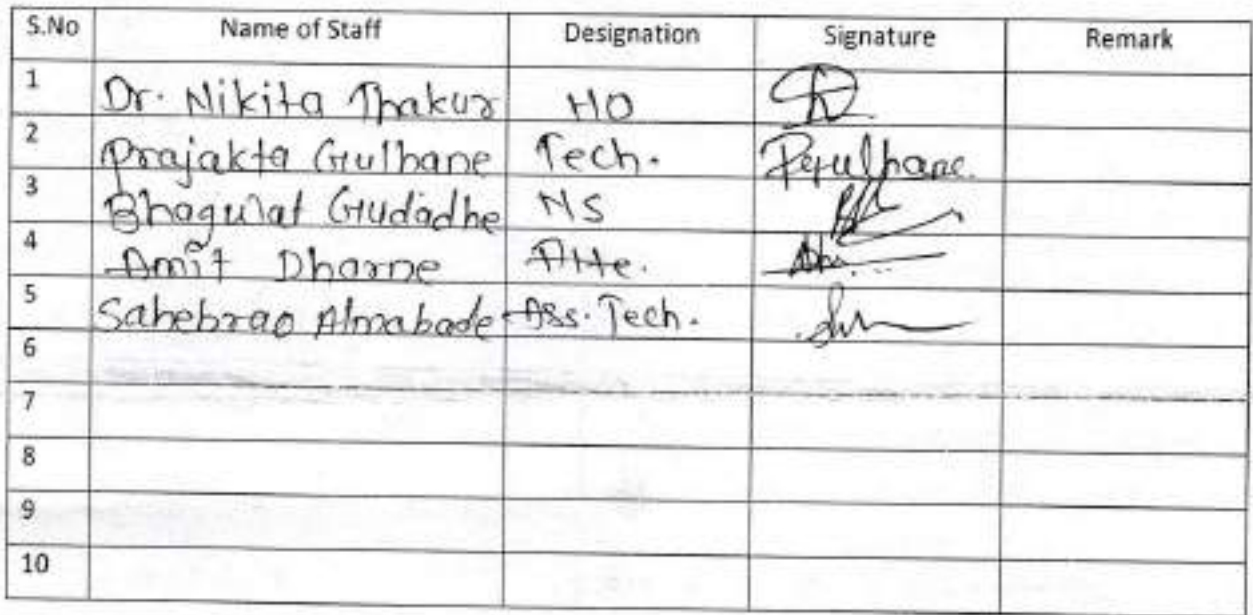 S.No Name of Staff Designation Signature Remark
1 Dr. Nikita Thakur HO
2 Prajakta Gulhane Tech. Pgulhane.
3 Bhagulat Gudadhe NS
4 Amit Dharne Atte.
5 Sahebrao Almabade Ass. Tech.
6
7
8
9
10